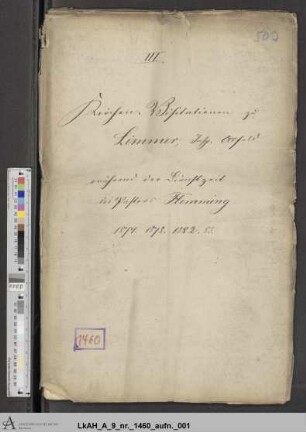 502
III.
Kirchen-Visitationen zu
Limmer, Insp.
während der Dienstzeit
des Pastors Flemming
1874. 1878. 1882.
1460
LkAH_A_9_nr._1460_aufn._001